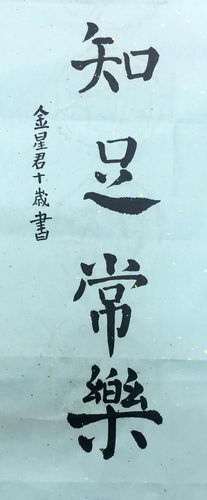 知足常樂
金星君十歲書